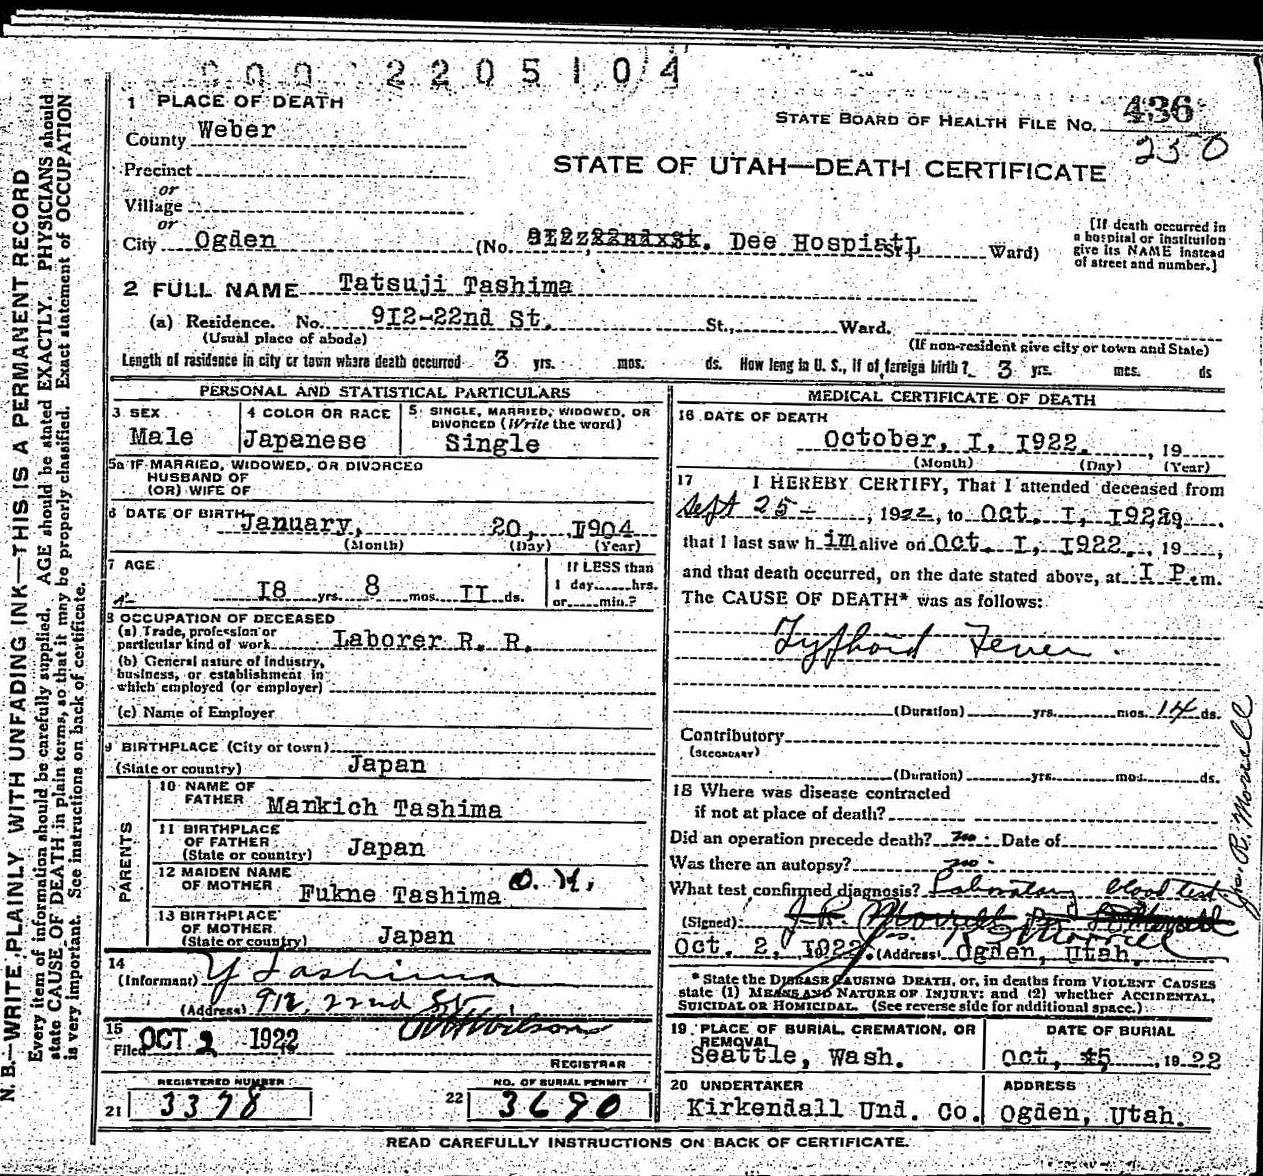 000 2205104
1 PLACE OF DEATH
STATE BOARD OF HEALTH FILE NO. 436
County Weber
230
Precinct
STATE OF UTAH—DEATH CERTIFICATE
or
Village
or
City Ogden (No. 912 22nd St. Dee Hospiatl St., Ward)
[If death occurred in
a hospital or institution
give its NAME instead
of street and number.]
2 FULL NAME Tatsuji Tashima
(a) Residence. No. 912-22nd St. St., Ward.
(Usual place of abode) (If non-resident give city or town and State)
Length of residence in city or town where death occurred 3 yrs. mos. ds. How long in U. S., if of foreign birth? 3 yrs. mos. ds
PERSONAL AND STATISTICAL PARTICULARS
3 SEX
Male
4 COLOR OR RACE
Japanese
5 SINGLE, MARRIED, WIDOWED, OR
DIVORCED (Write the word)
Single
5a IF MARRIED, WIDOWED, OR DIVORCED
HUSBAND OF
(OR) WIFE OF
6 DATE OF BIRTH January, 20, 1904
(Month) (Day) (Year)
7 AGE
18 yrs. 8 mos. 11 ds.
If LESS than
1 day hrs.
or min.?
8 OCCUPATION OF DECEASED
(a) Trade, profession or
particular kind of work Laborer R. R.
(b) General nature of Industry,
business, or establishment in
which employed (or employer)
(c) Name of Employer
9 BIRTHPLACE (City or town)
(State or country) Japan
PARENTS
10 NAME OF
FATHER Mankich Tashima
11 BIRTHPLACE
OF FATHER
(State or country) Japan
12 MAIDEN NAME
OF MOTHER Fukne Tashima O.K.
13 BIRTHPLACE
OF MOTHER
(State or country) Japan
14
(Informant) Y Tashima
(Address) 912, 22nd St
15
Filed OCT 2 1922
REGISTRAR
REGISTERED NUMBER
21 3378
NO. OF BURIAL PERMIT
22 3690
MEDICAL CERTIFICATE OF DEATH
16 DATE OF DEATH
October, 1, 1922. , 19
(Month) (Day) (Year)
17 I HEREBY CERTIFY, That I attended deceased from
Sept 25- , 1922, to Oct. 1, 1922,
that I last saw him alive on Oct. 1, 1922. , 19 ,
and that death occurred, on the date stated above, at 1 P.m.
The CAUSE OF DEATH* was as follows:
Typhoid Fever.
(Duration) yrs. mos. 14 ds.
Contributory
(SECONDARY)
(Duration) yrs. mos. ds.
18 Where was disease contracted
if not at place of death?
Did an operation precede death? no. Date of
Was there an autopsy? no.
What test confirmed diagnosis? Laboratory blood test
(Signed) J.R. Morrell
Jos. R. Morrell
Oct. 2, 1922. (Address) Ogden, Utah.
* State the DISEASE CAUSING DEATH, or, in deaths from VIOLENT CAUSES
state (1) MEANS AND NATURE OF INJURY; and (2) whether ACCIDENTAL,
SUICIDAL OR HOMICIDAL. (See reverse side for additional space.)
19 PLACE OF BURIAL, CREMATION, OR
REMOVAL
Seattle, Wash.
DATE OF BURIAL
Oct, 5, 1922
20 UNDERTAKER
Kirkendall Und. Co.
ADDRESS
Ogden, Utah.
READ CAREFULLY INSTRUCTIONS ON BACK OF CERTIFICATE.
N. B.—WRITE PLAINLY WITH UNFADING INK—THIS IS A PERMANENT RECORD
Every item of information should be carefully supplied. AGE should be stated EXACTLY. PHYSICIANS should
state CAUSE OF DEATH in plain terms, so that it may be properly classified. Exact statement of OCCUPATION
is very important. See instructions on back of certificate.
Jos. R. Morrell